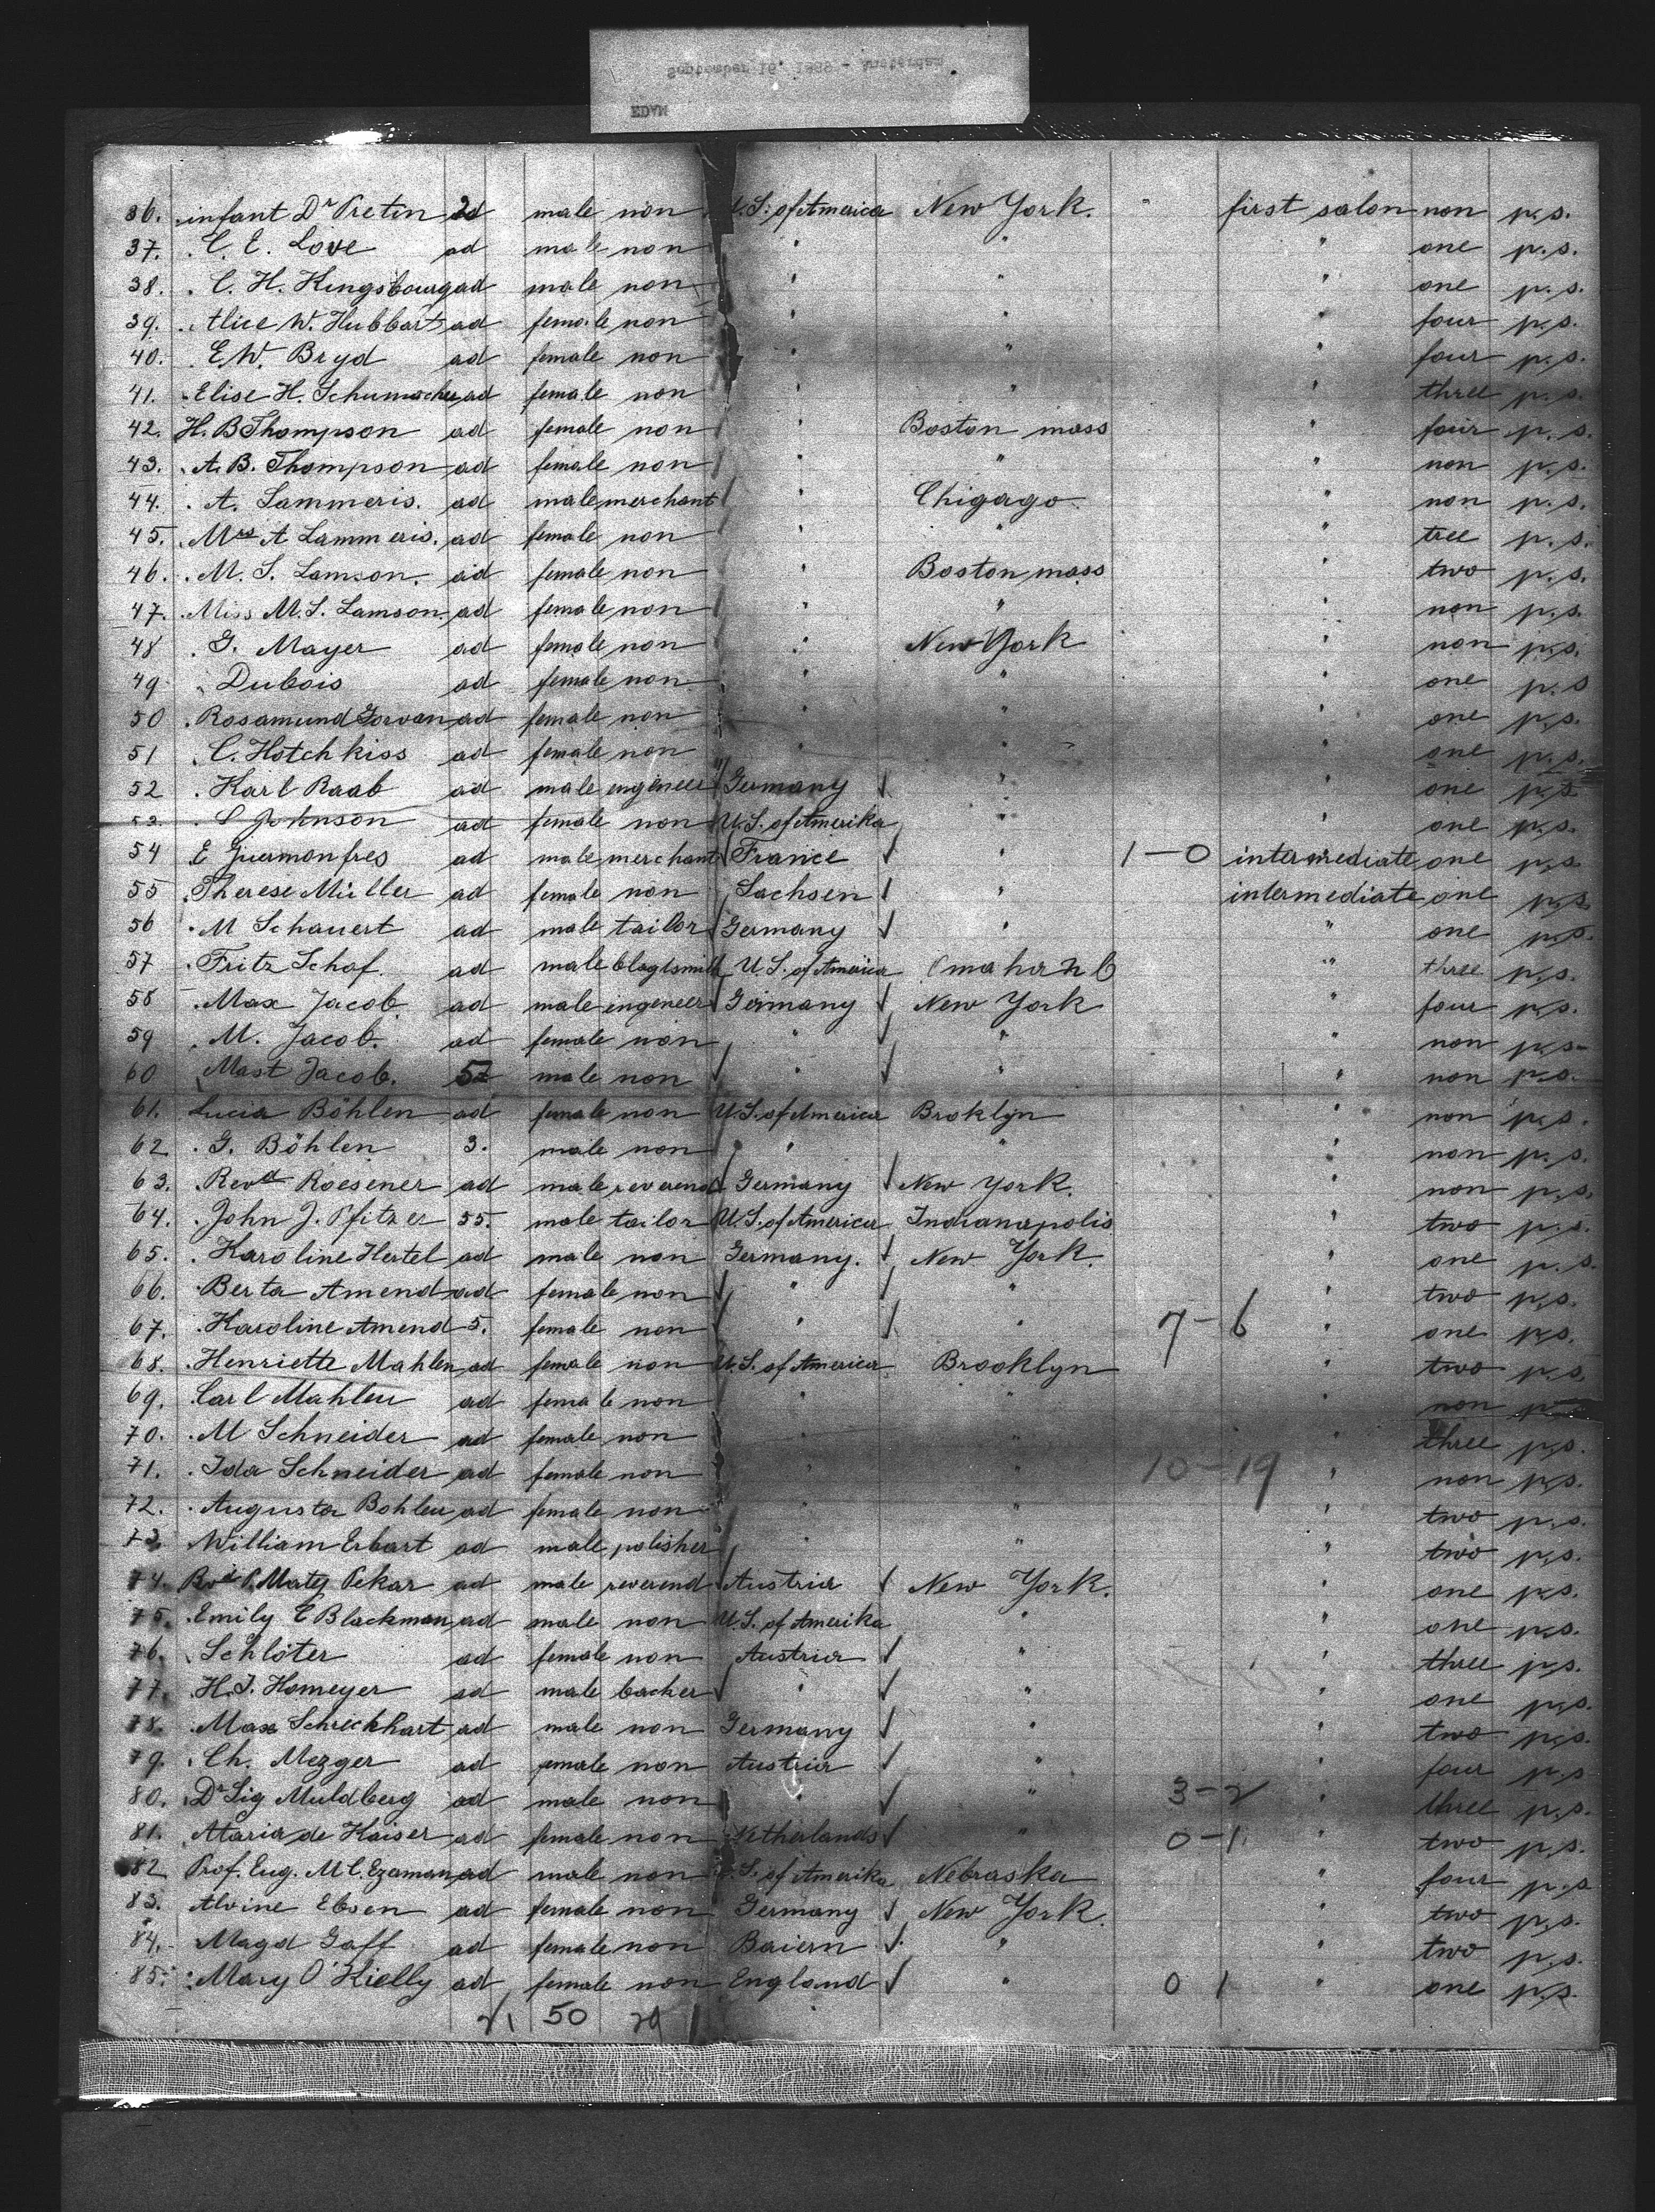 September 16, 1889 - Amsterdam
EDAM
36. infant Dr Pretin male non U.S. of America New York. " first salon non p.s.
37. C. E. Love ad male non " " " one p.s.
38. C. H. Kingsbourg ad male non " " " one p.s.
39. Alice W. Hubbart ad female non " " " four p.s.
40. E W. Bryd ad female non " " " four p.s.
41. Elise H. Schumacher ad female non " " " three p.s.
42. H. B Thompson ad female non " Boston mass " four p.s.
43. A. B. Thompson ad female non " " " non p.s.
44. A. Lammeris. ad male merchant " Chigago " non p.s.
45. Mrs A Lammeris. ad female non " " " tree p.s.
46. M. S. Lamson. ad female non " Boston mass " two p.s.
47. Miss M. S. Lamson. ad female non " " " non p.s.
48 G. Mayer ad female non " New York " non p.s.
49 Dubois ad female non " " " one p.s
50 Rosamund ad female non " " " one p.s.
51 C. Hotchkiss ad female non " " " one p.s.
52 Karl Raab ad male engeneer Germany " " one p.s
53. Johnson ad female non U.S. of Amerika " " one p.s.
54 E ad male merchant France " 1-0 intermediate one p.s
55 Therese Müller ad female non Sachsen " intermediate one p.s
56 M Schauert ad male tailor Germany " " one p.s.
57 Fritz Schaf. ad male blagtsmith U.S. of America Omaha " three p.s.
58 Max Jacob ad male ingeneer Germany New York " four p.s.
59 M. Jacob. ad female non " " " non p.s
60 Mast Jacob. male non " " " non p.s.
61. Lucia Böhlen ad female non U.S. of America Broklyn " non p.s.
62 G. Böhlen 3. male non " " " non p.s.
63. Revd Roesener ad male reverend Germany New York. " non p.s.
64. John J. Pfitzer 55. male tailor U.S. of America Indianapolis " two p.s.
65. Karoline Hertel ad male non Germany. New York. " one p.s.
66. Berta Amend ad female non " " " two p.s.
67. Karoline Amend 5. female non " " 7-6 " one p.s.
68. Henriette Mahlen ad female non U.S. of America Brooklyn " two p.s.
69. Carl Mahleu ad female non " " " non p
70. M Schneider ad female non " " " three p.s.
71. Ida Schneider ad female non " " 10-19 " non p.s.
72. Augusta Bohleu ad female non " " " two p.s.
73. William Erbart ad male polisher " " " two p.s.
74. Rvd P. Maty Pekar ad male reverend Austria New York. " one p.s.
75. Emily E Blackman ad male non U.S. of Amerika " " one p.s.
76. Schlöter ad female non Austria " " three p.s.
77. H. J. Homeyer ad male backer " " " one p.s.
78. Max Schreckhart ad male non Germany " " two p.s.
79. Ch. Mezger ad female non Austria " " four p.s
80. Dr Sig Muldberg ad male non " " 3-2 " three p.s.
81. Maria de Kaiser ad female non Netherlands " 0-1. " two p.s.
82 Prof. Eug. ad male non U.S. of Amerika Nebraska " four p.s
83. Alvine Ebsen ad female non Germany New York. " two p.s.
84. Magd Gaff ad female non Baiern " " two p.s.
85. Mary O'Kielly ad female non England " 0 1 " one p.s.
21 50 29